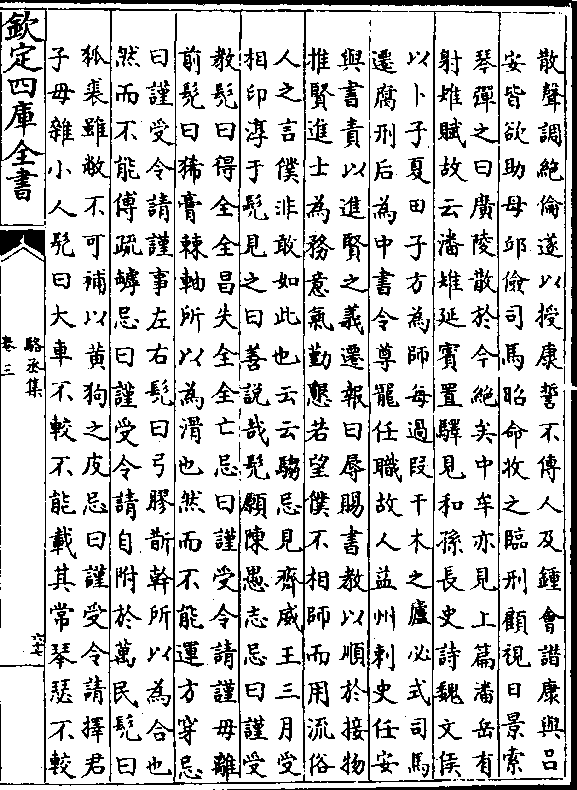 散聲調絕倫遂以授康誓不傳人及鍾會譖康與吕
安皆欲助毋邱儉司馬昭命收之臨刑顧視日景索
琴彈之曰廣陵散於今絶矣中牟亦見上篇潘岳有
射雉賦故云潘雉延賓置驛見和孫長史詩魏文侯
以卜子夏田子方為師每過段干木之廬必式司馬
遷腐刑后為中書令尊寵任職故人益州刺史任安
與書責以進賢之義遷報曰辱賜書教以順於接物
推賢進士為務意氣勤懇若望僕不相師而用流俗
人之言僕非敢如此也云云騶忌見齊威王三月受
相印淳于髠見之曰善説哉髠願陳愚志忌曰謹受
教髠曰得全全昌失全全亡忌曰謹受令請謹毋離
前髠曰狶膏棘軸所以為滑也然而不能運方穿忌
曰謹受令請謹事左右髠曰弓膠昕幹所以為合也
然而不能傅疏罅忌曰謹受令請自附於萬民髠曰
狐裘雖敝不可補以黄狗之皮忌曰謹受令請擇君
子毋雜小人髠曰大車不較不能載其常琴瑟不較
欽定四庫全書
駱丞集
卷三